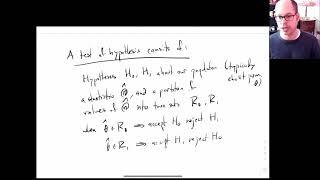 A test of hypothesis consists of:
Hypotheses H₀, H₁ about our population (typically about param θ)
a statistic Θ̂, and a partition of
values of Θ̂ into two sets R₀, R₁
when θ̂ ∈ R₀ ⟹ accept H₀ reject H₁
θ̂ ∈ R₁ ⟹ accept H₁ reject H₀